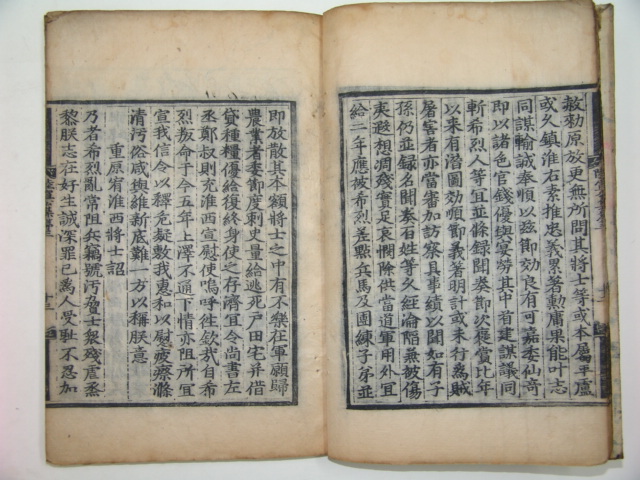 赦勑原放更無所問其將士等或本屬平盧
或久鎭淮右素推忠義累著勲庸果能叶志
同謀輸誠奉順以玆節効良有可嘉委仙奇
即以諸色官錢優與宴勞其中首建謀議同
斬希烈人等宜並條録聞奏節次褒賞比年
以來有潜圖効順節義著明計或未行爲賊
屠害者亦當審加訪察具事績以聞如有子
孫仍並録名聞奏百姓等久經淪陷無被傷
夷遐想凋殘實足哀憫除供當道軍用外宜
給二年應被希烈差點兵馬及團練子弟並
即放散其本額將士之中有不樂在軍願歸
農業者委節度刺史量給逃死戸田宅并借
貸種糧優給復終身使之存濟宜令尚書左
丞鄭叔則充淮西宣慰使嗚呼徃欽哉自希
烈叛命于今五年上澤不通下情亦阻所宜
宣我信令以釋危疑敷我惠和以慰疲瘵滌
清汚俗咸與維新底難一方以稱朕意
重原宥淮西將士詔
乃者希烈亂常阻兵竊號汚脅士衆殘虐烝
黎朕志在好生誠深罪已爲人受耻不忍加